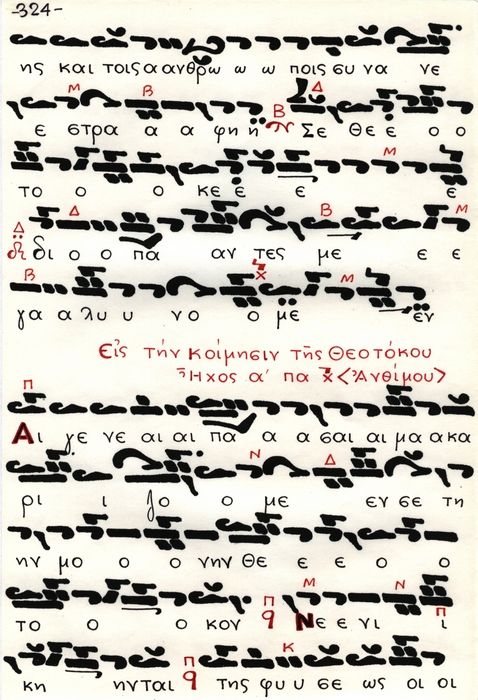 -324-
ης και τοις α ανθρω ω ω ποις συ να νε
Μ Β Β Δ
ε στρα α α φη η Σε Θε ε ο ο
Μ
το ο ο κε ε ε ε
Δ Δ Β Μ
δι ο ο πα αν τες με ε ε
Β χ Μ
γα α λυ υ νο ο με εν
Εἰς τήν Κοίμησιν τῆς Θεοτόκου
Ἦχος α' πα χ <Ἀνθίμου>
π
Αι γε νε αι αι πα α α σαι αι μα α κα
Ν Δ
ρι ι ζο ο με εν σε τη
ην μο ο ο νην Θε ε ε ο ο
π Μ Ν π
το ο ο κον q Νε ε νι ι
π Κ
κη ηνται q της φυ υ σε ως οι οι